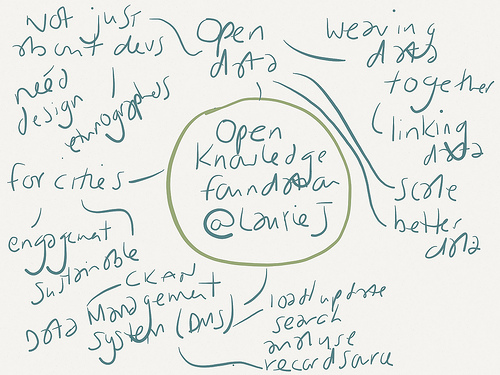 Open
Knowledge
foundation
@LaurieJ
Open
data
Not just
about devs
need
design
ethnographers
weaving
data
together
linking
data
scale
better
data
for cities
engagement
sustainable
CKAN
Data Management
System (DMS)
load/update
search
analyse
record source